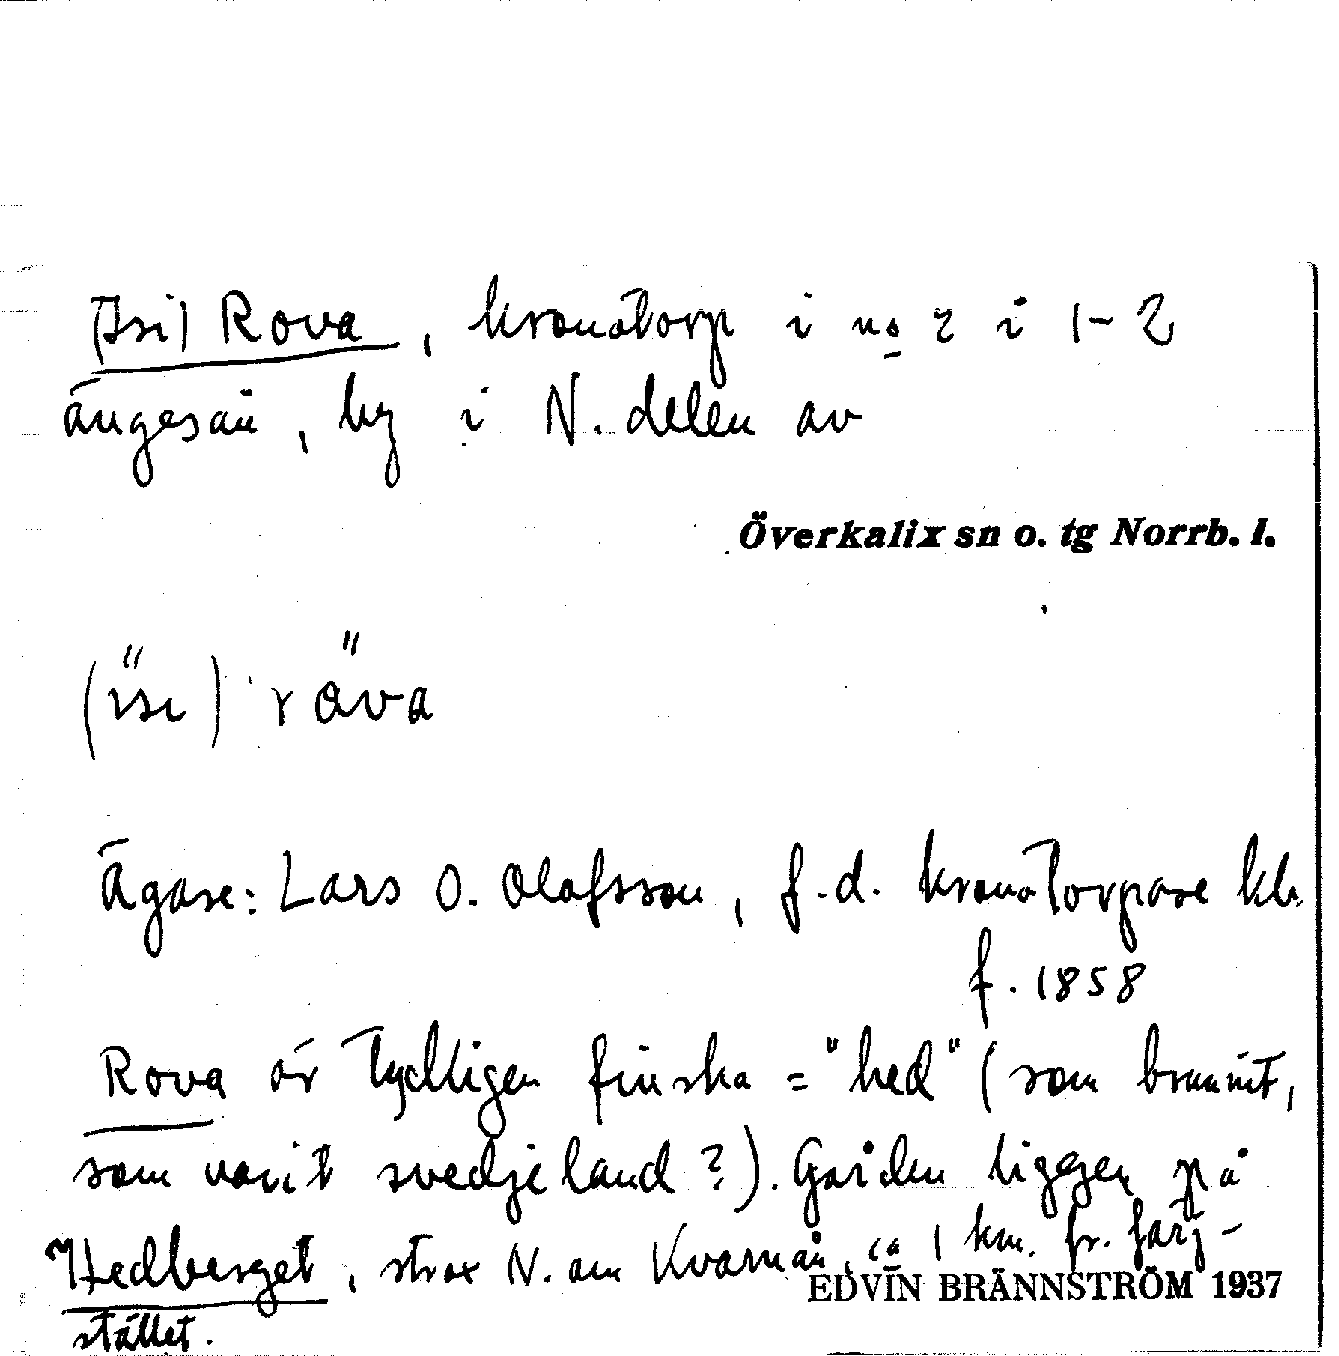 (Isi) Rova, kronotorp i no 2 i 1-2
ängesån, by i N. delen av
Överkalix sn o. tg Norrb. l.
(ïsi) röva
Ägare: Lars O. Olofsson, f.d. kronotorpare
f. 1858
Rova är tydligen finska = "hed" (som brunnit,
som varit svedjeland?). Gården ligger på
Hedberget, strax N. om Kvarnån, ca 1 km. fr. färj-
stället.
EDVIN BRÄNNSTRÖM 1937